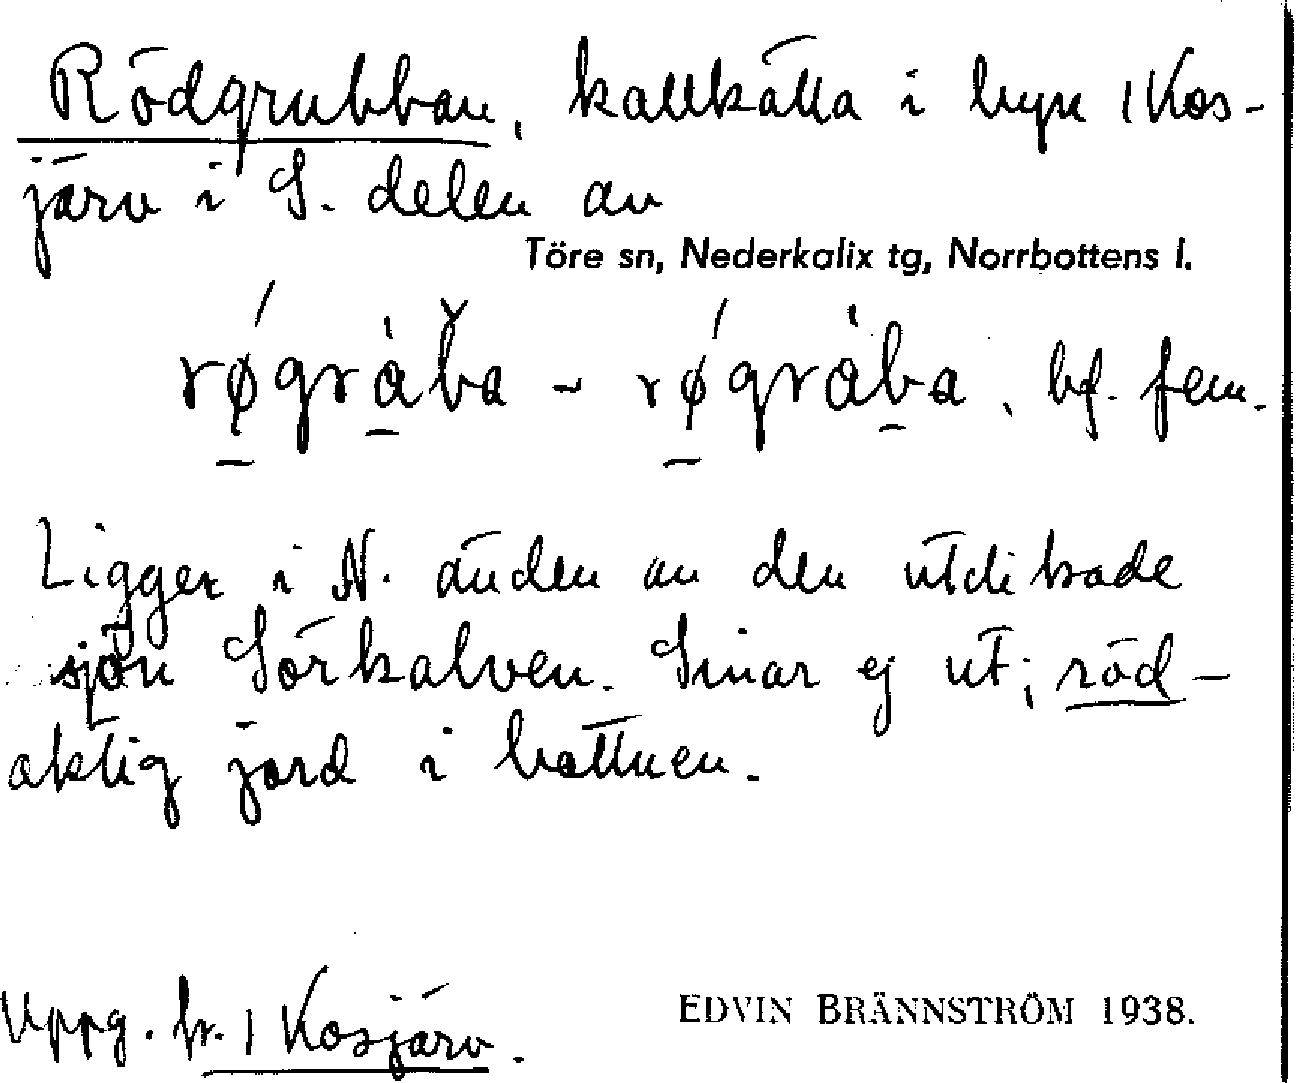 Rödgrubban, kallkälla i byn 1 Kos-
järv i S. delen av
Töre sn, Nederkalix tg, Norrbottens l.
rǿ̱gràb̌a ~ rǿ̱gràḇa, bf. fem.
Ligger i N. änden av den utdikade
sjön Sörkalven. Sinar ej ut; röd-
aktig jord i bottnen.
Uppg. fr. 1 Kosjärv.
EDVIN BRÄNNSTRÖM 1938.